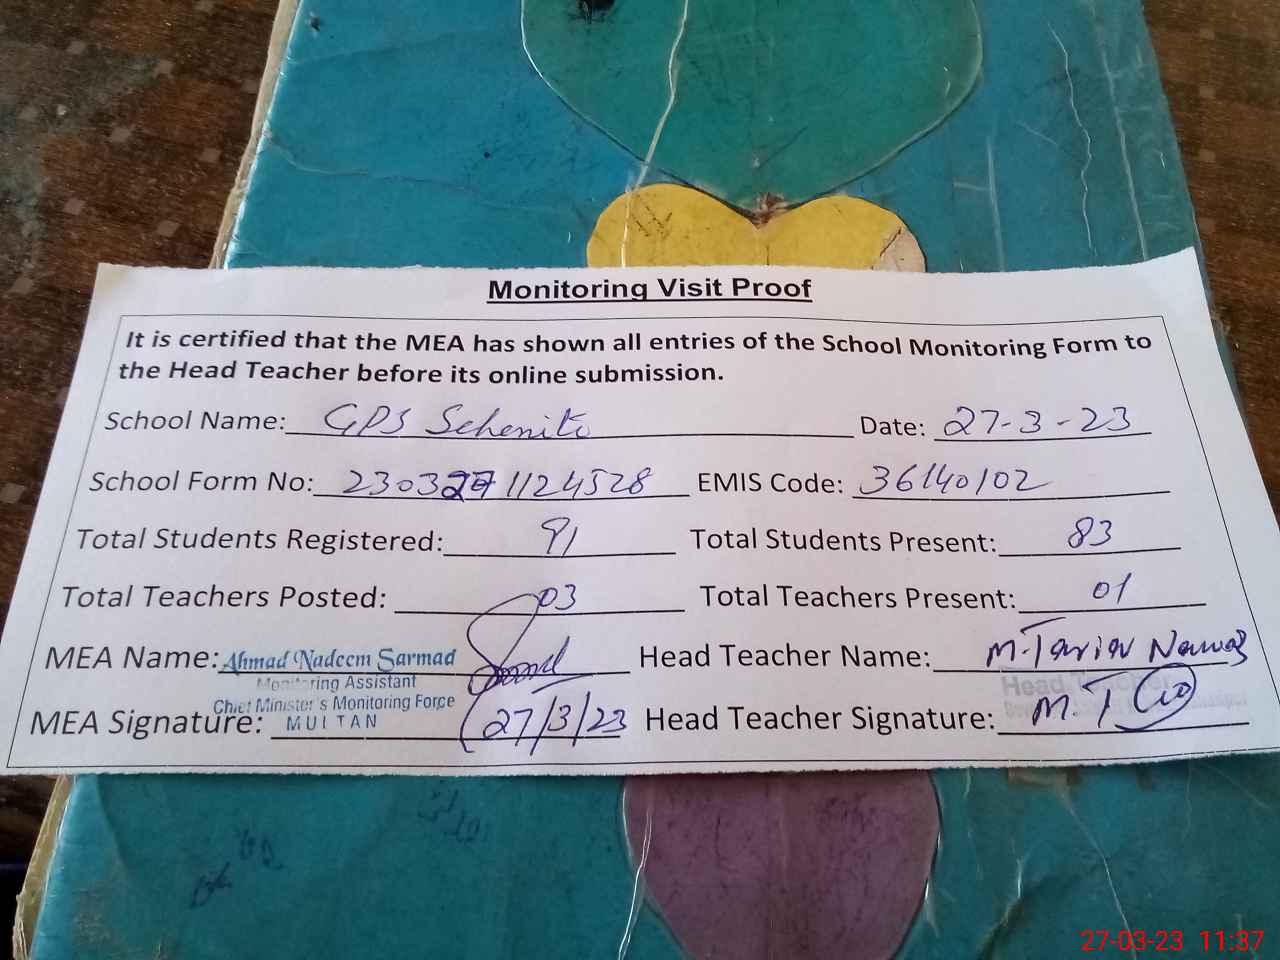 Monitoring Visit Proof
It is certified that the MEA has shown all entries of the School Monitoring Form to
the Head Teacher before its online submission.
School Name: GPS Date: 27-3-23
School Form No: 230327 1124528 EMIS Code: 36140102
Total Students Registered: 91 Total Students Present: 83
Total Teachers Posted: 03 Total Teachers Present: 01
MEA Name: Ahmad Nadeem Sarmad Head Teacher Name: M. Nawaz
Monitoring Assistant Head Teacher
Chief Minister's Monitoring Force
MEA Signature: MULTAN 27/3/23 Head Teacher Signature: M. T
27-03-23 11:37